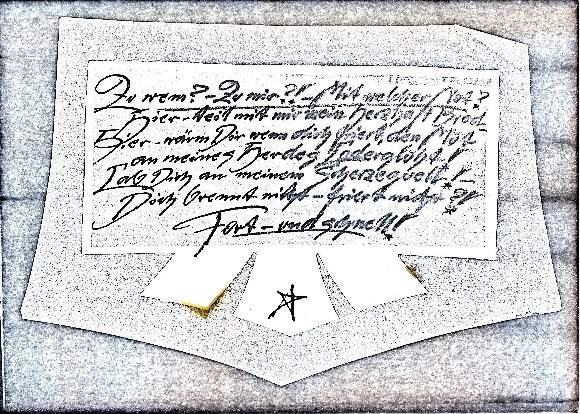 Zu wem? – Zu mir?! – Mit welcher Not?
Hier – teil mit mir mein herzhaft Brod –
Hier – wärm Dir wenn dich friert, den
an meines Herdes Loderglüht!
Lab Dich an meinem
Dich brennt nichts – friert nichts?!
Fort – und schnell!